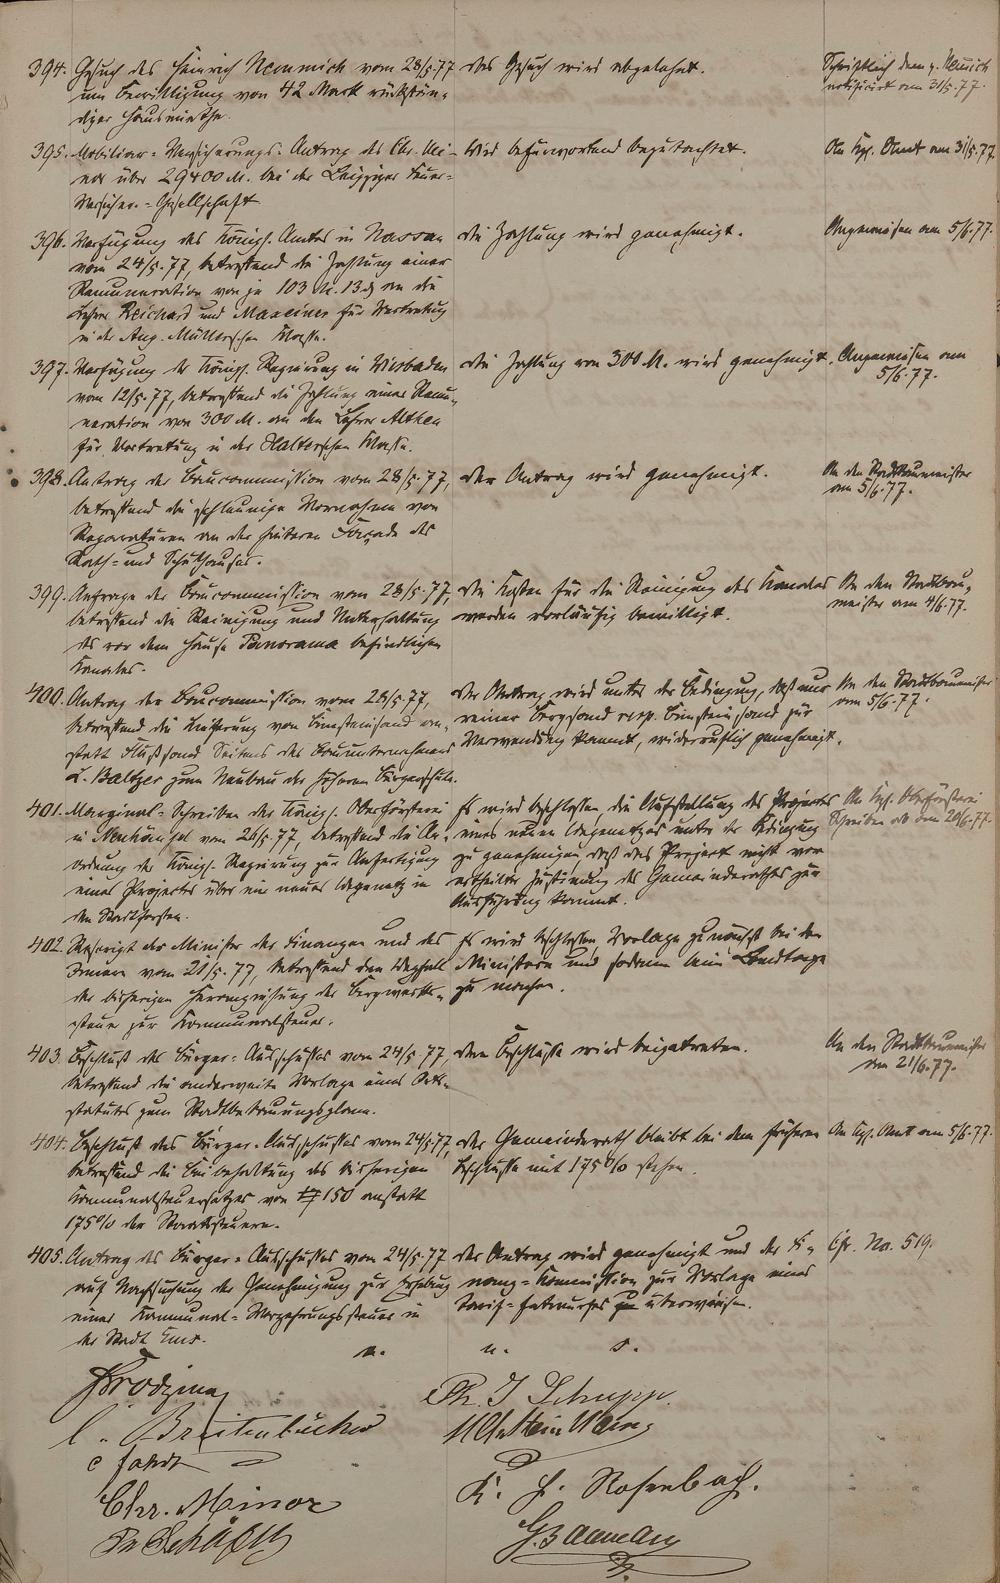 394. Gesuch des Heinrich Nemmich vom 28/5.77
um Bewilligung von 42 Mark rückstän-
diger Hausmiethe.
Das Gesuch wird abgelehnt.
Schriftlich dem p. Nemmich
notificirt am 31/5.77.
395. Mobiliar-Versicherungs-Antrag des Chr. Mi-
nor über 29400 M. bei der Leipziger Feuer-
Versicher.-Gesellschaft
Wird befürwortend begutachtet.
An Kgl. Amt am 31/5.77.
396. Verfügung des Königl. Amtes in Nassau
vom 24/5.77, betreffend die Zahlung einer
Remuneration von je 103 M. 13 an die
Lehrer Reichard und Maxeiner für Vertretung
in der Aug. Müller'schen Klasse.
Die Zahlung wird genehmigt.
Angewiesen am 5/6.77.
397. Verfügung der Königl. Regierung in Wiesbaden
vom 12/5.77, betreffend die Zahlung einer Remu-
neration von 300 M. an den Lehrer Althen
für Vertretung in der Halter'schen Klasse.
Die Zahlung von 300 M. wird genehmigt.
Angewiesen am
5/6.77.
398. Antrag der Baucommission vom 28/5.77,
betreffend die schleunige Vornahme von
Reparaturen an der hinteren Façade des
Rath- und Schulhauses.
Der Antrag wird genehmigt.
An den Stadtbaumeister
am 5/6.77.
399. Anfrage der Baucommission vom 28/5.77,
betreffend die Reinigung und Unterhaltung
des vor dem Hause Panorama befindlichen
Kanales.
Die Kosten für die Reinigung des Kanales
werden vorläufig bewilligt.
An den Stadtbau-
meister am 4/6.77.
400. Antrag der Baucommission vom 28/5.77,
betreffend die Lieferung von Bimsteinsand an-
statt Flußsand Seitens des Bauunternehmers
L. Baltzer zum Neubau der höheren Bürgerschule.
Der Antrag wird unter der Bedingung, daß nur
reiner Bergsand resp. Bimsteinsand zur
Verwendung kommt, widerruflich genehmigt.
An den Stadtbaumeister
am 5/6.77.
401. Marginal-Schreiben der Königl. Oberförsterei
in Neuhäusel vom 26/5.77, betreffend die An-
ordnung der Königl. Regierung zur Anfertigung
eines Projectes über ein neues Wegenetz in
den Stadtforsten.
Es wird beschlossen, die Aufstellung des Projectes
eines neuen Wegenetzes unter der Bedingung
zu genehmigen, daß das Project nicht vor
ertheilter Zustimmung des Gemeinderathes zur
Ausführung kommt.
An Kgl. Oberförsterei
Schreiben ab den 20/6.77.
402. Rescript der Minister der Finanzen und des
Innern vom 21/5.77, betreffend den Wegfall
der bisherigen Heranziehung der Bergwerks-
steuer zur Kommunalsteuer.
Es wird beschlossen, Vorlage zunächst bei den
Ministern und sodann beim Landtage
zu machen.
403. Beschluß des Bürger-Ausschusses vom 24/5.77
betreffend die anderweite Vorlage eines Orts-
statutes zum Stadtbebauungsplane.
Dem Beschlusse wird beigetreten.
An den Stadtbaumeister
am 21/6.77.
404. Beschluß des Bürger-Ausschusses vom 24/5.77,
betreffend die Beibehaltung des bisherigen
Kommunalsteuersatzes von 150 anstatt
175% der Staatssteuern.
Der Gemeinderath bleibt bei dem früheren
Beschlusse mit 175% stehen.
An Kgl. Amt am 5/6.77.
405. Antrag des Bürger-Ausschusses vom 24/5.77
auf Nachsuchung der Genehmigung zur Erhebung
einer Kommunal-Verzehrungssteuer in
der Stadt Ems.
Der Antrag wird genehmigt und der Fi-
nanz-Kommission zur Vorlage eines
Tarif-Entwurfes zu überweisen.
Cfr. No. 519.
v. u. s.
Ph. J. Schupp.
C. Breitenbücher
K. H. Rosenbach.
Chr. Minor
Ph Schäfer
G. Baumann